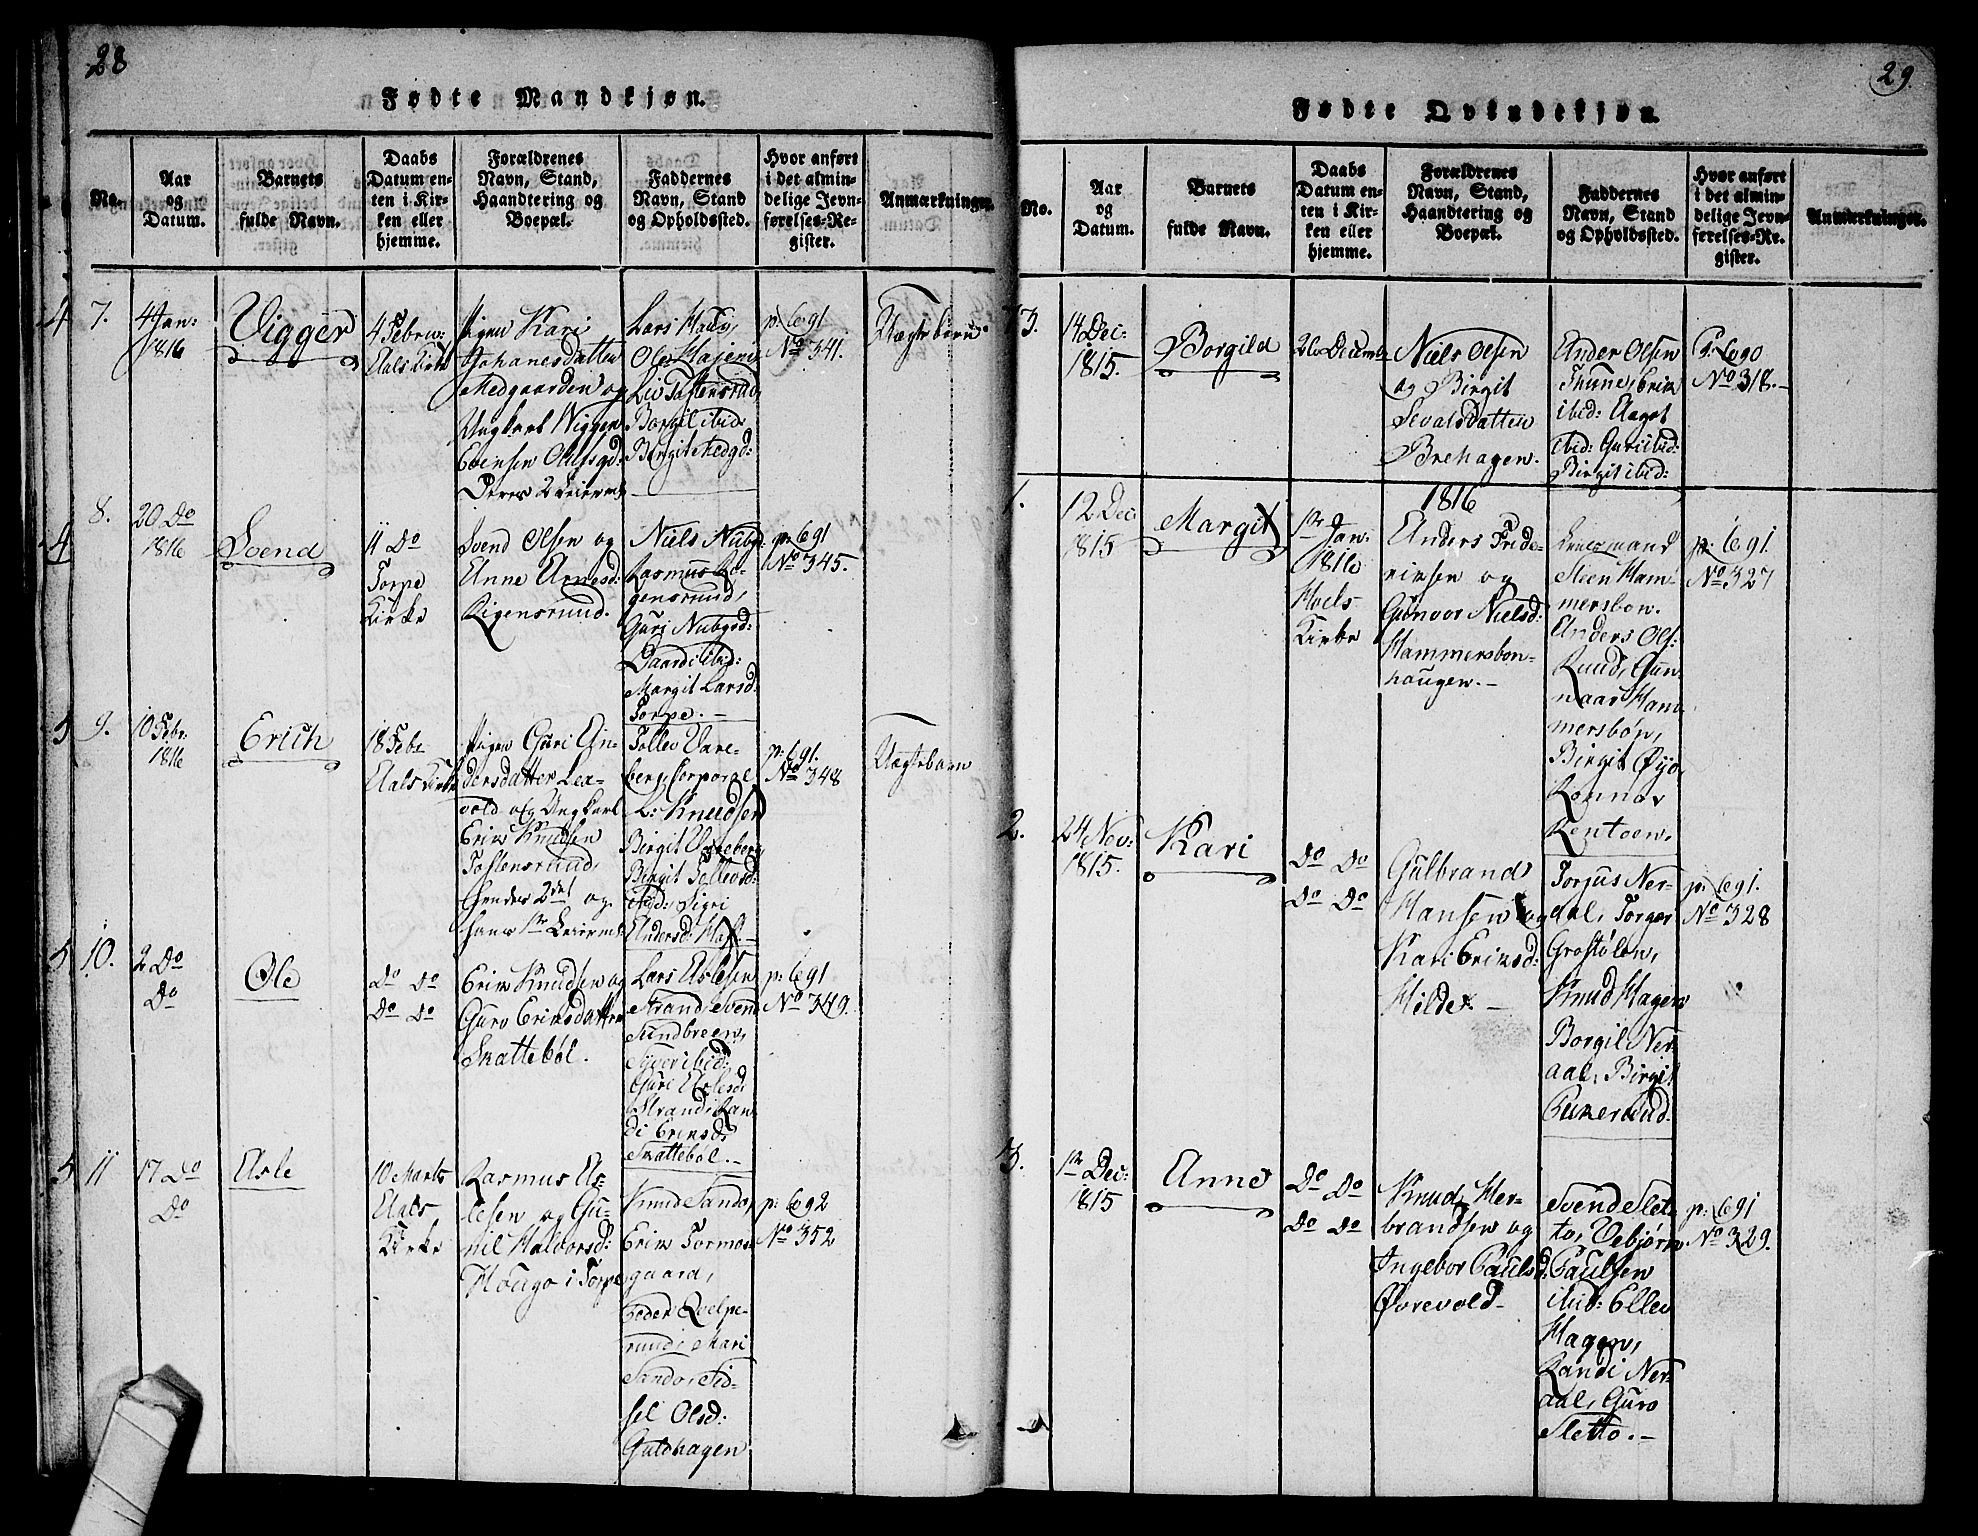 28
Fødte Mandkjøn.
No.
Aar
og
Datum.
Barnets
fulde Navn.
Daabs
Datum en-
ten i Kir-
ken eller
hjemme.
Forældrenes
Navn, Stand,
Haandtering og
Boepæl.
Faddernes
Navn, Stand
og Opholdssted.
Hvor anført
i det almin-
delige Jevn-
førelses-Re-
gister.
Anmærkninger.
4 7.
4 Jan:
1816
Vigger
4 Febru:
Aals Kirke
Pigen Kari
Johanesdatter
Medgaarden og
Ungkarl Wigger
Svensen
Deres 2 Leierm:
Lars
Ole
Liv Tostensrud,
Borgil ibid:
Birgit Medgd:
p: 691
No 341.
Uægte barn
4 8.
20 Do
1816
Svend
11 Do
Torpe
Kirke
Svend Olsen og
Anne Arnesd:
Rigensruud.
Niels Nubgd:
Rasmus Ro-
gensruud,
Guri Nubgd:
ibid:
Margit Larsd:
Torpe. –
p: 691
No 345.
5 9.
10 Febr:
1816
Erich
18 Febr
Aals Kirke
Pigen Guri An-
dersdatter Lea-
vold og Ungkarl
Erik Knudsen
Tostensruud,
hendes 2det og
hans 1ste Leierm:
Tollev Vare-
berg, Corporal
L: Knudsen
Birgit Vareberg
Birgit Tollevsd:
ibid: Sigri
Andersd:
p: 691.
No 348
Uægtebarn
5 10.
2 Do
Do
Ole
Do Do
Do Do
Erik Knudsen og
Guro Eriksdatter
Skattebøl.
Lars Aslesen
Strand, Svend
Sundbreen,
Syver ibid:
Guri Aslesd:
Strand, Ran-
di Eriksd:
Skattebøl. –
p: 691
No 349.
5 11
17 Do
Do
Asle
10 Marts
Aals
Kirke
Rasmus As-
lesen og Gu-
nil Halvorsd:
Hougo i Torpe
Knud Sando,
Erik Tormos-
gaard,
Peder Qvelpe-
ruud, Mari
Sando, Sid-
sel Olsd:
Guldhagen
p: 692
No 352
29.
Fødte Qvindekjøn.
No.
Aar
og
Datum.
Barnets
fulde Navn.
Daabs
Datum en-
ten i Kir-
ken eller
hjemme.
Forældrenes
Navn, Stand,
Haandtering og
Boepæl.
Faddernes
Navn, Stand
og Opholdssted.
Hvor anført
i det almin-
delige Jevn-
førelses-Re-
gister.
Anmærkninger.
73.
14 Dec:
1815.
Borgild
26 Decemb:
Niels Olsen
og Birgit
Sevalsdatter
Brehagen.
Ander Olsen
Thune, Erik
ibid: Aagot
ibid: Guri ibid:
Birgit ibid:
p: 690
No 318. –
1816
1.
12 Dec:
1815
Margit
1ste Jan:
1816
Hoels
Kirke
Anders Fride-
riksen og
Gunvor Nielsd:
Hammersbøn-
haugen. –
Lensmand
Steen Ham-
mersbøn.
Anders Ols:
Ruud, Gun-
naar Ham-
mersbøn,
Birgit Øijo,
Ronnov
Rentoen,
p: 691.
No 327
2.
24 Nov:
1815.
Kari
Do Do
Do Do
Gulbrand
Hansen og
Kari Eriksd:
Hilde. –
Torjus Ner-
aal, Torger
Grostølen,
Knud Hagen
Borgil Ner-
aal, Birgit
p: 691.
No 328
3.
1ste Dec:
1815
Anne
Do Do
Do Do
Knud Her-
brandsen og
Ingebor Paulsd:
Øvrevold–
Svend Slet-
to, Vebjørn
Paulsen
ibid: Ellev
Hagen,
Randi Ner-
aal, Guro
Sletto. –
p: 691
No 329.